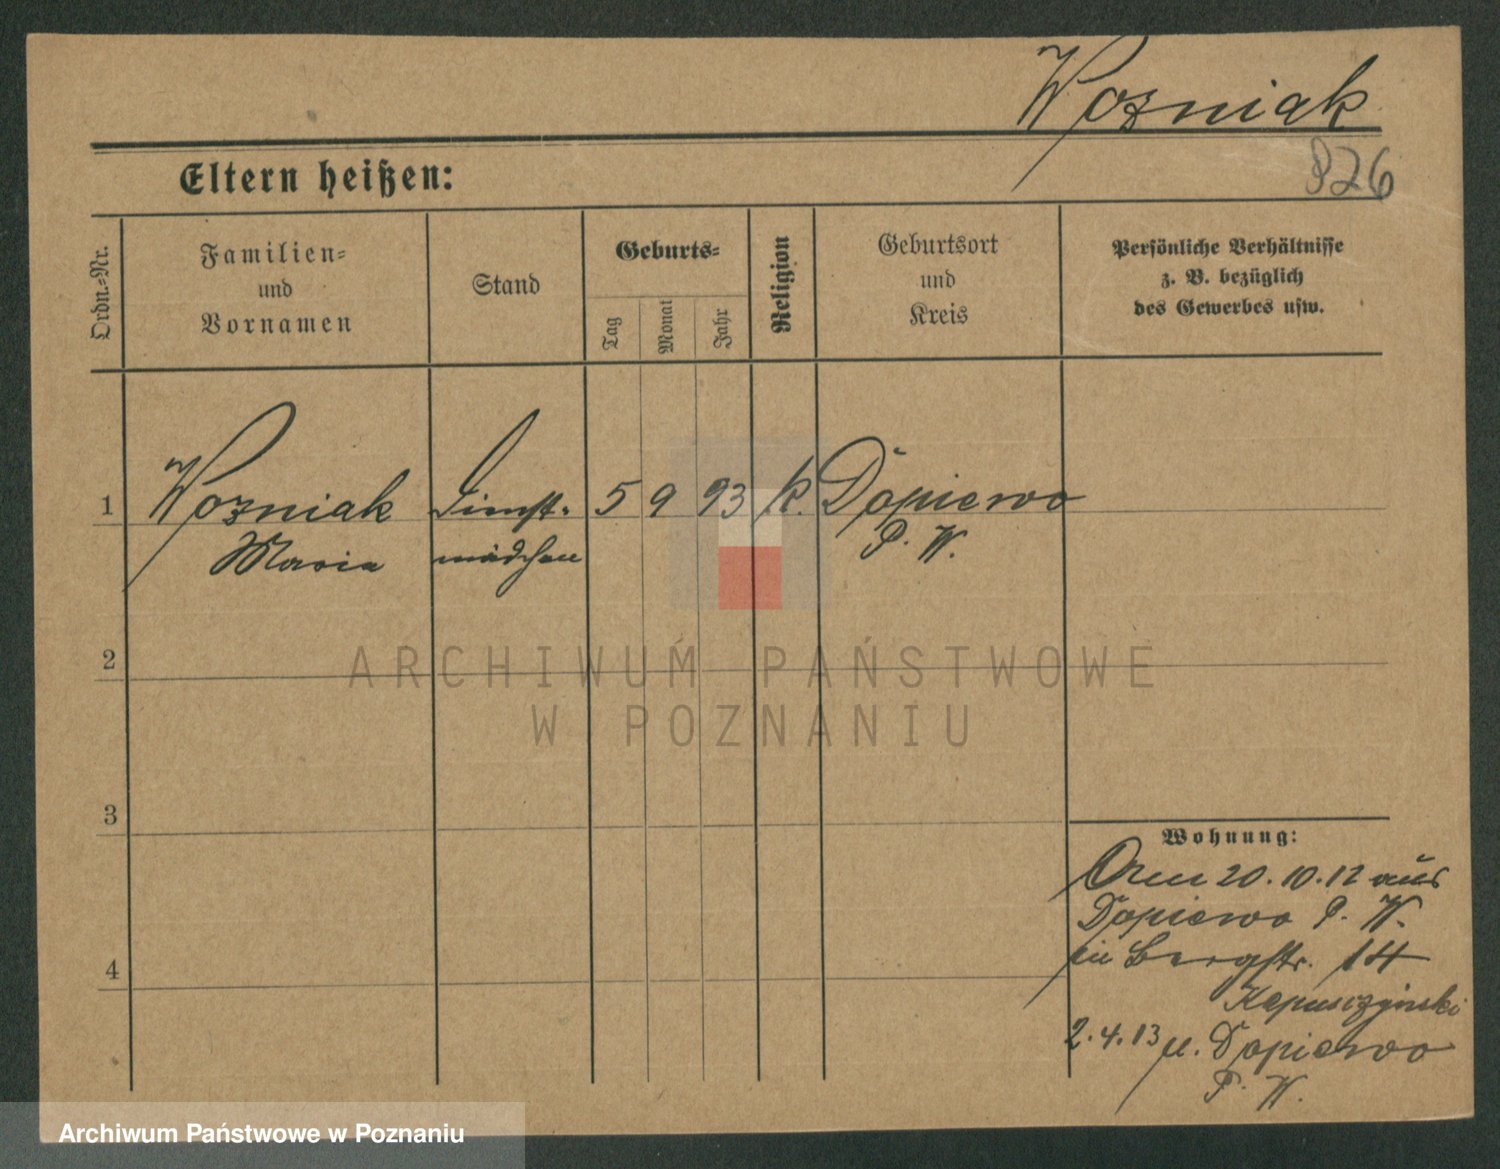 Wozniak
826
Eltern heißen:
Ordn.-Nr.
Familien-
und
Vornamen
Stand
Geburts-
Tag
Monat
Jahr
Religion
Geburtsort
und
Kreis
Persönliche Verhältnisse
z. B. bezüglich
des Gewerbes usw.
1 Wozniak Dienst- 5 9 93 k. Dopiewo
Maria mädchen P. W.
2
3
4
Wohnung:
20.10.12 aus
Dopiewo P. W.
in Bergstr. 14
Kapuszynski
2.4.13 n. Dopiewo
P. W.
ARCHIWUM PAŃSTWOWE
W POZNANIU
Archiwum Państwowe w Poznaniu